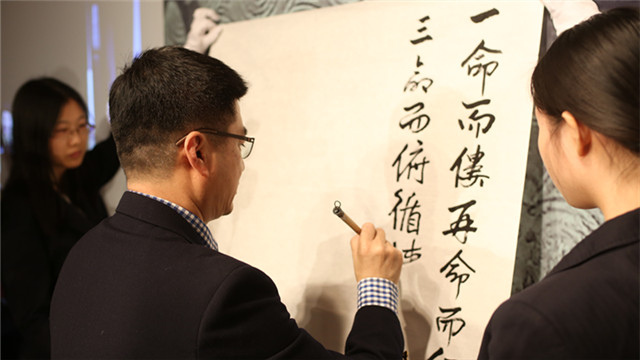 一命而偻再命而
三命而俯循